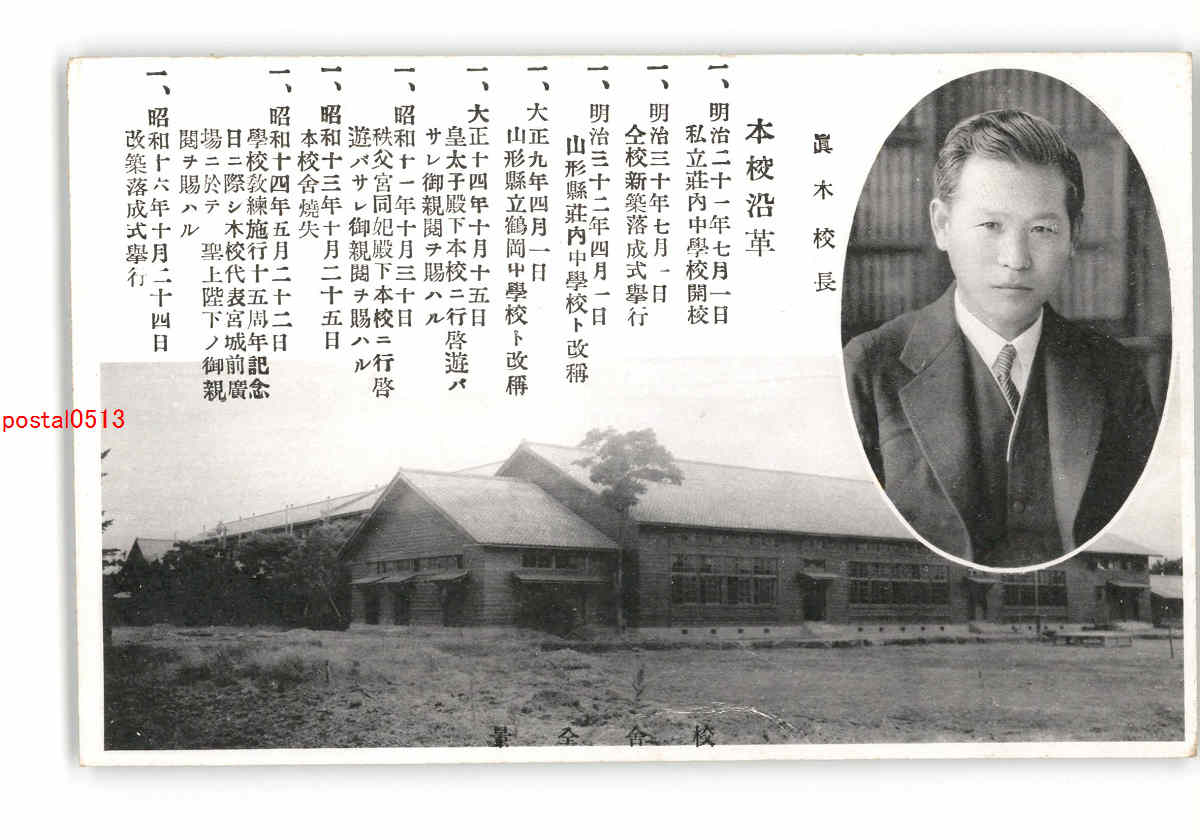 眞木校長
本校沿革
一、明治二十一年七月一日
私立莊内中學校開校
一、明治三十年七月一日
仝校新築落成式擧行
一、明治三十二年四月一日
山形縣莊内中學校ト改稱
一、大正九年四月一日
山形縣立鶴岡中學校ト改稱
一、大正十四年十月十五日
皇太子殿下本校ニ行啓遊バ
サレ御親閲ヲ賜ハル
一、昭和十一年十月三十日
秩父宮同妃殿下本校ニ行啓
遊バサレ御親閲ヲ賜ハル
一、昭和十三年十月二十五日
本校舍燒失
一、昭和十四年五月二十二日
學校敎練施行十五周年記念
日ニ際シ本校代表宮城前廣
場ニ於テ 聖上陛下ノ御親
閲ヲ賜ハル
一、昭和十六年十月二十四日
改築落成式擧行
校舍全景
postal0513